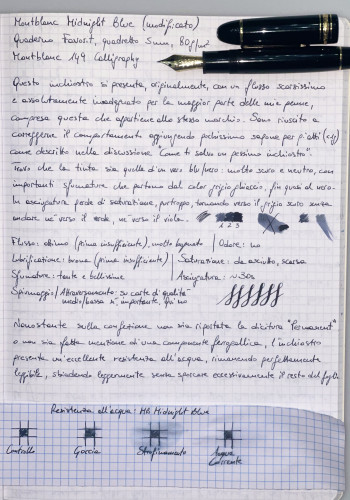 Montblanc Midnight Blue (modificato)
Quaderno Favorit, quadretto 5mm, 80g/m²
Montblanc 149 Calligraphy
Questo inchiostro si presenta, originalmente, con un flusso scarsissimo
e assolutamente inadeguato per la maggior parte delle mie penne,
compresa questa che appartiene allo stesso marchio. Sono riuscito a
correggerne il comportamento aggiungendo pochissimo sapone per piatti
come descritto nella discussione "Come ti salvo un pessimo inchiostro".
Trovo che la tinta sia quella di un vero blu/nero: molto scura e neutra, con
importanti sfumature che partono dal color grigio ghiaccio, fin quasi al nero.
In asciugatura perde di saturazione, purtroppo, tornando verso il grigio scuro senza
andare né verso il verde, né verso il viola.
1 2 3
Flusso: ottimo (prima insufficiente), molto bagnato | Odore: no
Lubrificazione: buona (prima insufficiente) | Saturazione: da asciutto, scarsa
Sfumature: tante e bellissime | Asciugatura: ~30s
Spiumaggio/Attraversamento: su carte di qualità
medio/bassa sì, importante, qui no
Nonostante sulla confezione non sia riportata la dicitura "Permanent"
o non sia fatta menzione di una componente ferrogallica, l'inchiostro
presenta un'eccellente resistenza all'acqua, rimanendo perfettamente
leggibile, sbiadendo leggermente senza sporcare eccessivamente il resto del foglio.
Resistenza all'acqua: MB Midnight Blue
Controllo Goccia Strofinamento Acqua
Corrente